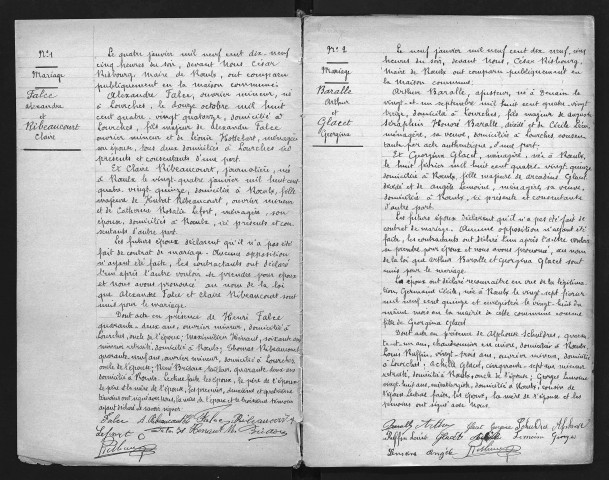 N° 1
Mariage
Falce
Alexandre
et
Ribeaucourt
Claire
Le quatre janvier mil neuf cent dix-neuf
cinq heures du soir, devant Nous César
Risbourg, Maire de Rœulx, ont comparu
publiquement en la maison commune
Alexandre Falce, ouvrier mineur, né
à Lourches, le douze octobre mil huit
cent quatre vingt quatorze, domicilié à
Lourches, fils majeur de Alexandre Falce
ouvrier mineur et de ménagère
son épouse, tous deux domiciliés à Lourches ici
présents et consentants d'une part.
Et Claire Ribeaucourt, journalière, née
à Rœulx le vingt janvier mil huit cent
quatre vingt quinze, domiciliée à Rœulx, fille
majeure de Ribeaucourt, ouvrier mineur
et de Catherine Lefort, ménagère, son
épouse, domiciliés à Rœulx, ici présents et con-
sentants d'autre part.
Les futurs époux déclarent qu'il n'a pas été
fait de contrat de mariage. Aucune opposition
n'ayant été faite, les contractants ont déclaré
l'un après l'autre vouloir se prendre pour époux
et nous avons prononcé au nom de la loi
que Alexandre Falce et Claire Ribeaucourt sont
unis par le mariage
Dont acte en présence de Henri Falce
quarante-deux ans, ouvrier mineur, domicilié à
Lourches, oncle de l'époux; Maximilien Hénaut, soixante ans
mineur retraité, domicilié à Rœulx; Ribeaucourt
quarante neuf ans, ouvrier mineur, domicilié à Lourches
oncle de l'épouse; René tailleur, quarante deux ans
domicilié à Rœulx. Lecture faite les époux, le père de l'époux
le père et la mère de l'épouse, les premier, deuxième et quatrième
témoins ont signé avec nous, la mère de l'époux et le troisième témoin
ayant déclaré ne savoir signer
Falce A Ribeaucourt Falce Ribeaucourt
Lefort Hénaut
N° 2
Mariage
Baralle
Arthur
et
Glacet
Georgina
Le neuf janvier mil neuf cent dix neuf, cinq
heures du soir, devant Nous, César Risbourg,
Maire de Rœulx ont comparu publiquement en
la maison commune
Arthur Baralle, ajusteur, né à Denain le
vingt et un septembre mil huit cent quatre vingt
treize, domicilié à Lourches, fils majeur de Auguste
Séraphin Honoré Baralle, décédé et de Cécile
ménagère, sa veuve, domiciliée à Lourches consen-
tante par acte authentique, d'une part.
Et Georgina Glacet, ménagère, née à Rœulx,
le huit février mil huit cent quatre vingt quinze,
domiciliée à Rœulx, fille majeure de Glacet
décédé et de Angèle Lemoine, ménagère, sa veuve,
domiciliée à Rœulx, ici présente et consentante
d'autre part.
Les futurs époux déclarent qu'il n'a pas été fait de
contrat de mariage. Aucune opposition n'ayant été
faite, les contractants ont déclaré l'un après l'autre vouloir
se prendre pour époux et nous avons prononcé, au nom
de la loi que Arthur Baralle et Georgina Glacet sont
unis par le mariage
Les époux ont déclaré reconnaître en vue de la légitima-
tion, Germaine Cécile, née à Rœulx le vingt-sept février
mil neuf cent quinze et enregistrée le vingt-huit du
même mois en la mairie de cette commune comme
fille de Georgina Glacet
Dont acte en présence de Alphonse quaran-
te-un ans, chaudronnier en cuivre, domicilié à Rœulx,
Louis Ruffin, vingt-trois ans, ouvrier mineur, domicilié
à Lourches, Achille Glacet, cinquante-sept ans mineur
retraité, domicilié à Rœulx, oncle de l'épouse; Georges Lemoine
vingt huit ans, métallurgiste, domicilié à Rœulx, cousin de
l'épouse. Lecture faite, les époux, la mère de l'épouse et les
témoins ont signé avec Nous.
Baralle Arthur Alphonse
Ruffin Louis Glacet Achille Lemoine Georges
Lemoine Angèle